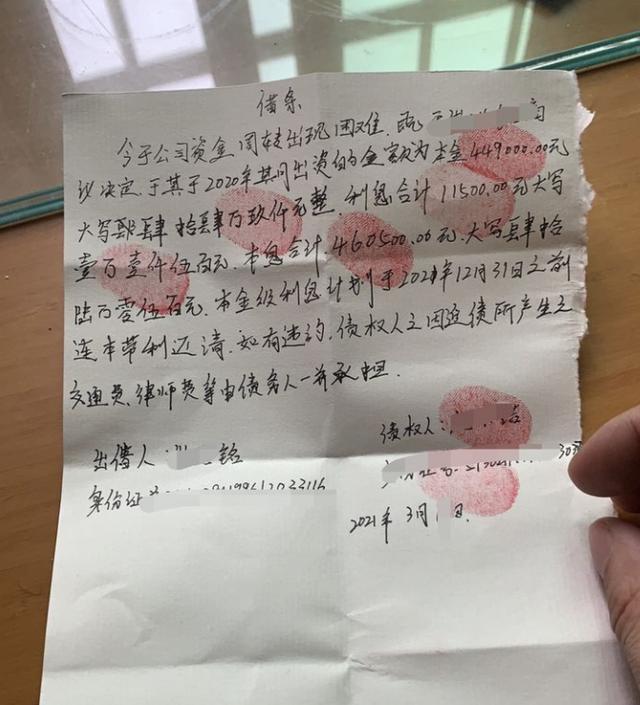 借条
今于公司资金周转出现困难. 司
议决定于其于2020年其间出资的金额为本金449000.00元
大写肆拾肆万玖仟元整. 利息合计11500.00元大写
壹万壹仟伍百元. 本息合计460500.00元. 大写肆拾
陆万零伍百元. 本金级利息计划于2021年12月31日之前
连本带利还清. 如有违约. 债权人之因追债所产生之
交通费、律师费等由债务人一并承担.
出借人: 铭
身份证 199612033116
债权人: 浩
2021年3月 日.